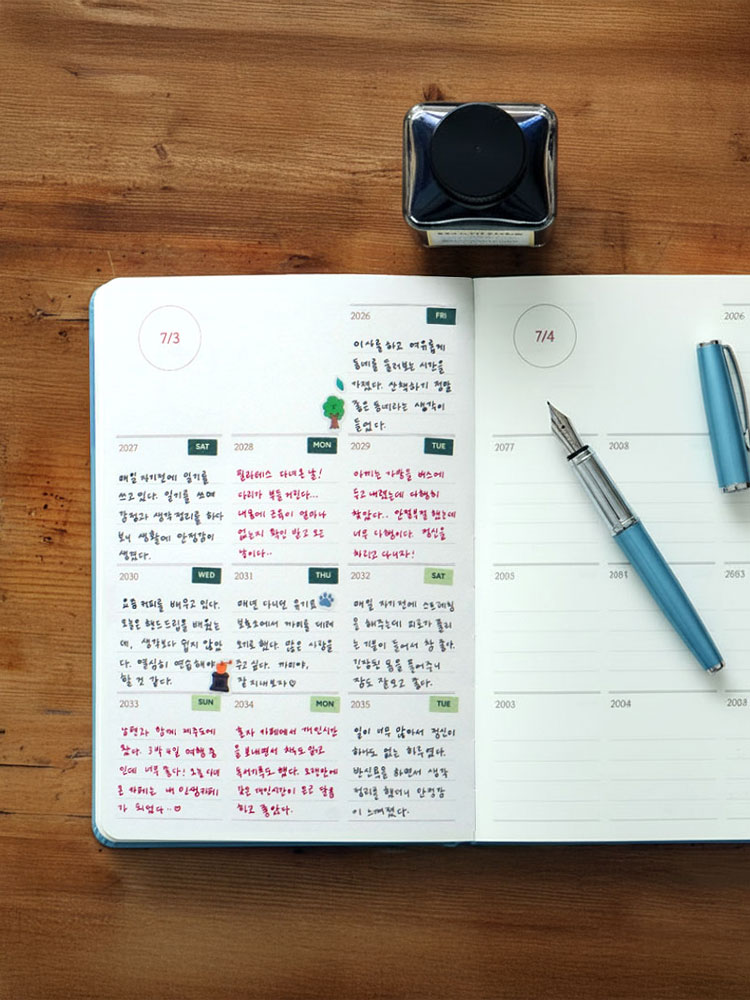 7/3
2026 FRI
이사를 하고 여유롭게
동네를 둘러보는 시간을
가졌다. 산책하기 정말
좋은 동네라는 생각이
들었다.
2027 SAT
매일 자기전에 일기를
쓰고 있다. 일기를 쓰며
감정과 생각정리를 하다
보니 생활에 안정감이
생겼다.
2028 MON
필라테스 다녀온 날!
다리가 부들거린다...
내몸에 근육이 얼마나
없는지 확인 받고 오는
날이다..
2029 TUE
아끼는 가방을 버스에
두고 내렸는데 다행히
찾았다.. 안절부절 했는데
너무 다행이다. 정신을
차리고 다니자!
2030 WED
요즘 커피를 배우고 있다.
오늘은 핸드드립을 배웠는
데, 생각보다 쉽지 않았
다. 열심히 연습해야
할 것 같다.
2031 THU
매년 다니던 유기묘
보호소에서 까미를 데려
오기로 했다. 많은 사랑을
주고 싶다. 까미야,
잘 지내보자♡
2032 SAT
매일 자기전에 스트레칭
을 해주는데 피로가 풀리
는 기분이 들어서 참 좋아.
긴장된 몸을 풀어주니
잠도 잘오고 좋다.
2033 SUN
남편과 함께 제주도에
왔다. 3박 4일 여행 중
인데 너무 좋다! 오늘 다녀
온 카페는 내 인생카페
가 되었다..♡
2034 MON
혼자 카페에서 개인시간
을 보내면서 책도 읽고
독서기록도 했다. 오랜만에
갖은 개인시간이 운고 달콤
하고 좋았다.
2035 TUE
일이 너무 많아서 정신이
하나도 없는 하루였다.
반신욕을 하면서 생각
정리를 했더니 안정감
이 느껴졌다.
7/4
2026
2077
2008
2005
2081
2663
2003
2004
2008